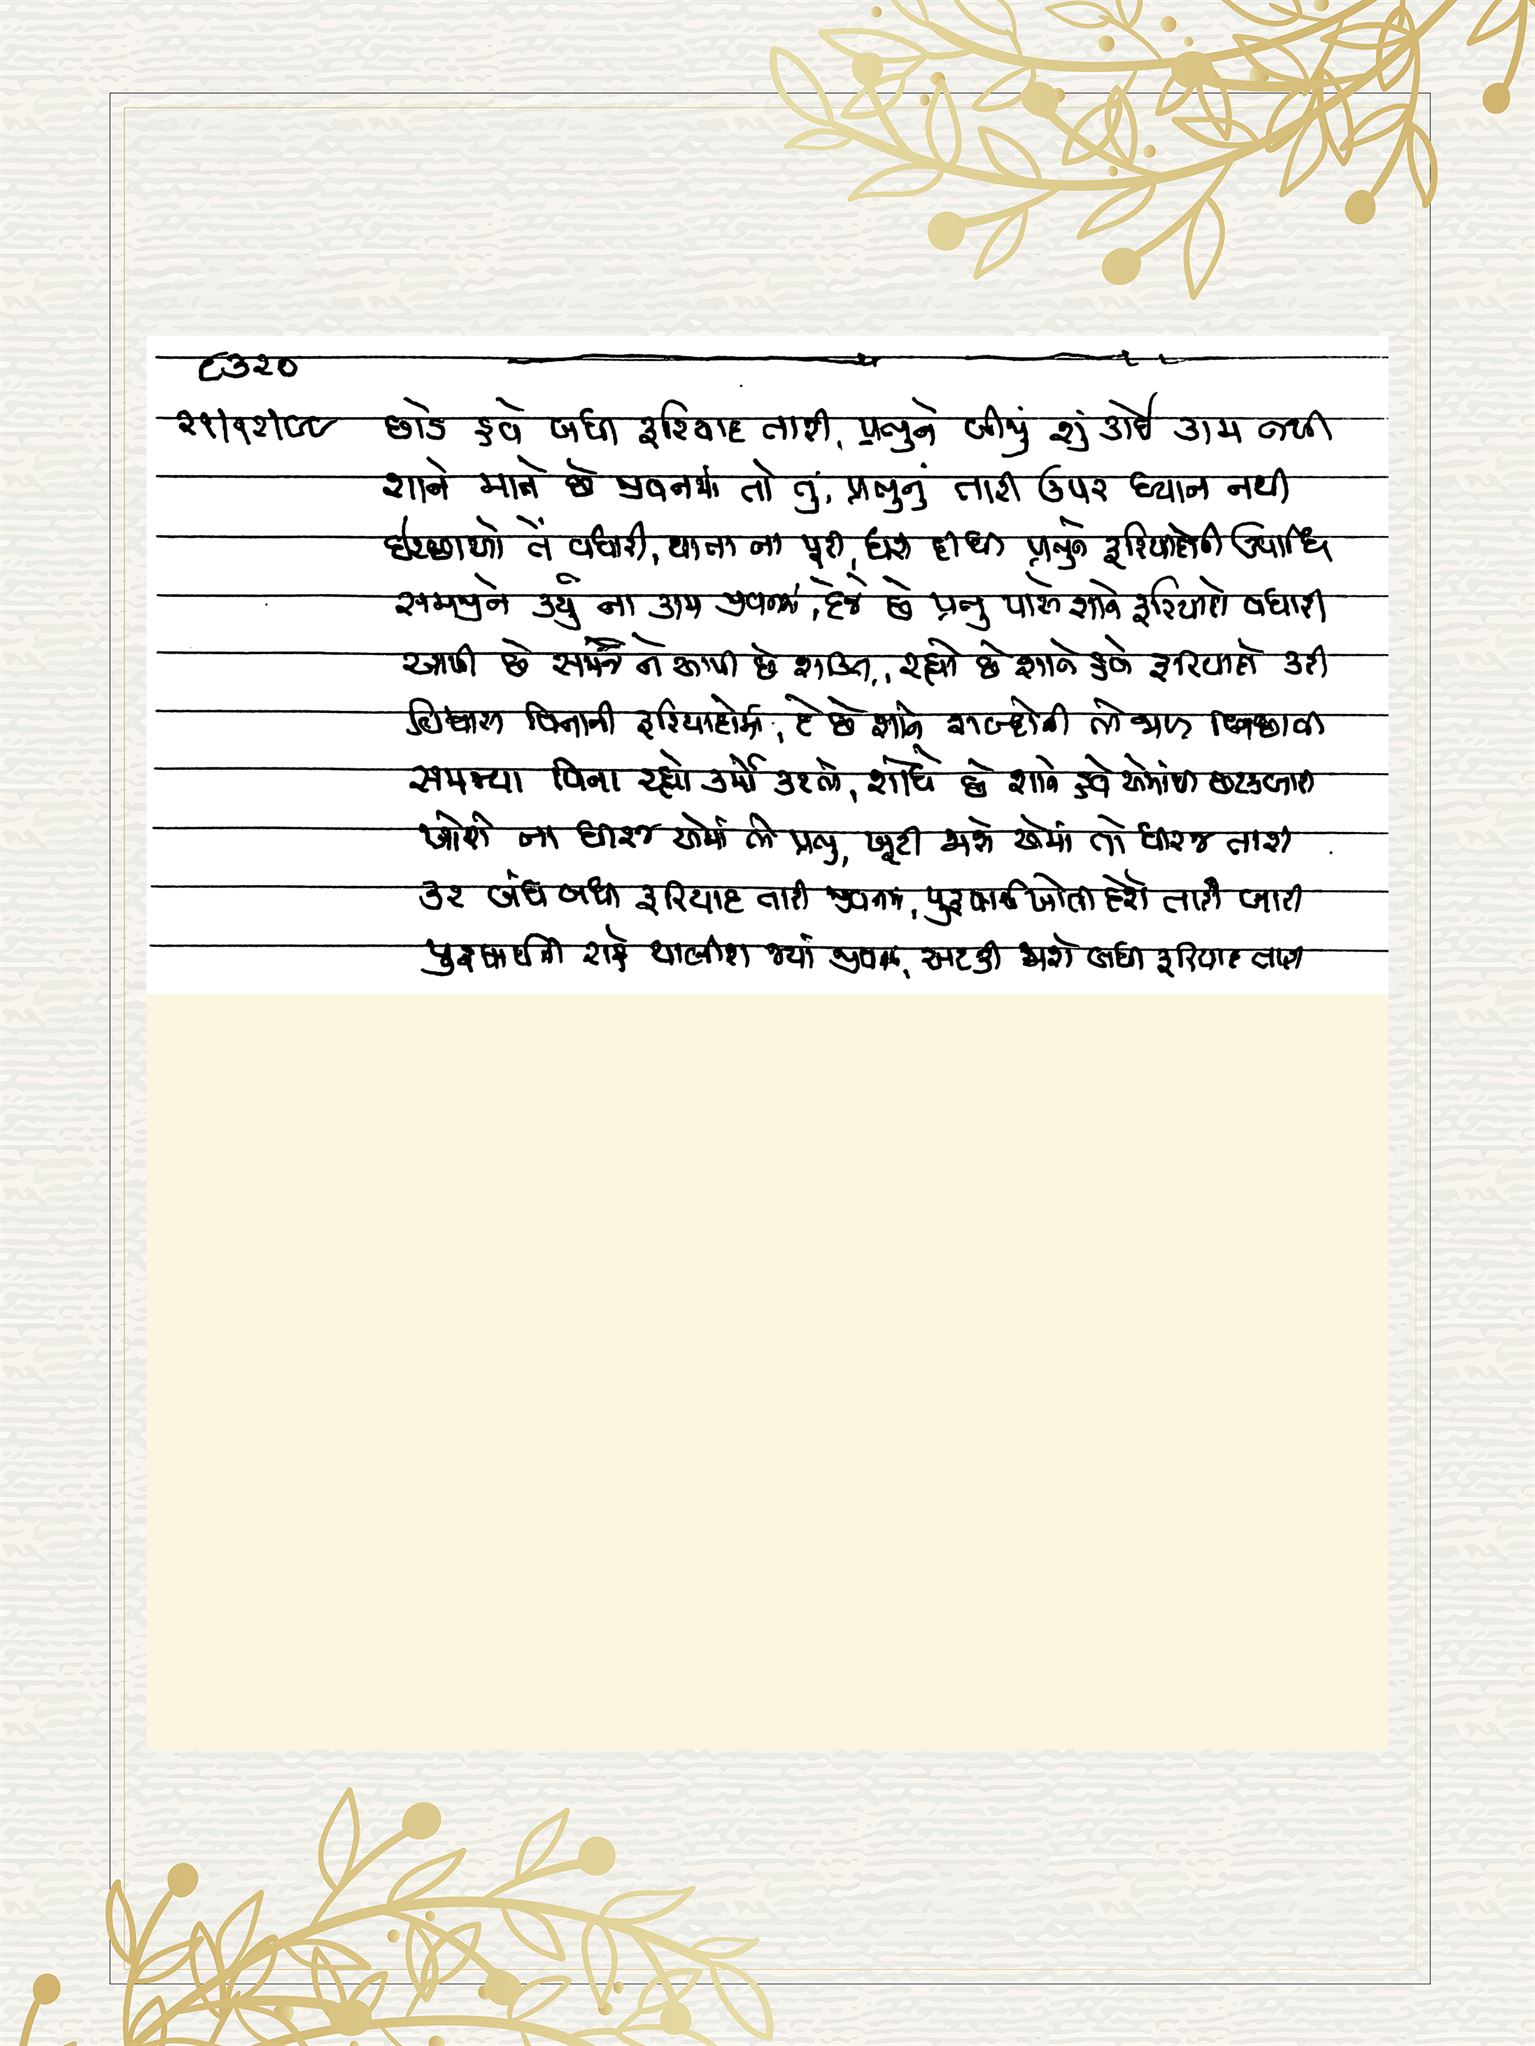 ૮૩૨૦
૨૧/૧૨/૯૯ છોડ હવે બધી ફરિયાદ તારી, પ્રભુને બીજું શું કોઈ કામ નથી
શાને માને છે જીવનમાં તો તું, પ્રભુનું તારી ઉપર ધ્યાન નથી
ઇચ્છાઓ તેં વધારી, થાતા ના પૂરી, ધરી દીધી પ્રભુને ફરિયાદોની ઉપાધિ
સમજીને કર્યું ના કામ જીવનમાં, દેજે છે પ્રભુ પાસે શાને ફરિયાદો વધારી
આપી છે સમજ ને આપી છે શક્તિ, રહ્યો છે શાને હવે ફરિયાદો કરી
વિશ્વાસ વિનાની ફરિયાદોમાં, દે છે શાને શબ્દોની તો જાળ બિછાવી
સમજ્યા વિના રહ્યો કર્મો કરતો, શોધે છે શાને હવે એમાંથી છટકબારી
ખોશે ના ધીરજ એમાં તો પ્રભુ, ખૂટી જાશે એમાં તો ધીરજ તારી
કર બંધ બધી ફરિયાદ તારી જીવનમાં, પુરુષાર્થ ખોલી દેશે તારી બારી
પુરુષાર્થની રાહે ચાલીશ જ્યાં જીવનમાં, અટકી જાશે બધી ફરિયાદ તારી